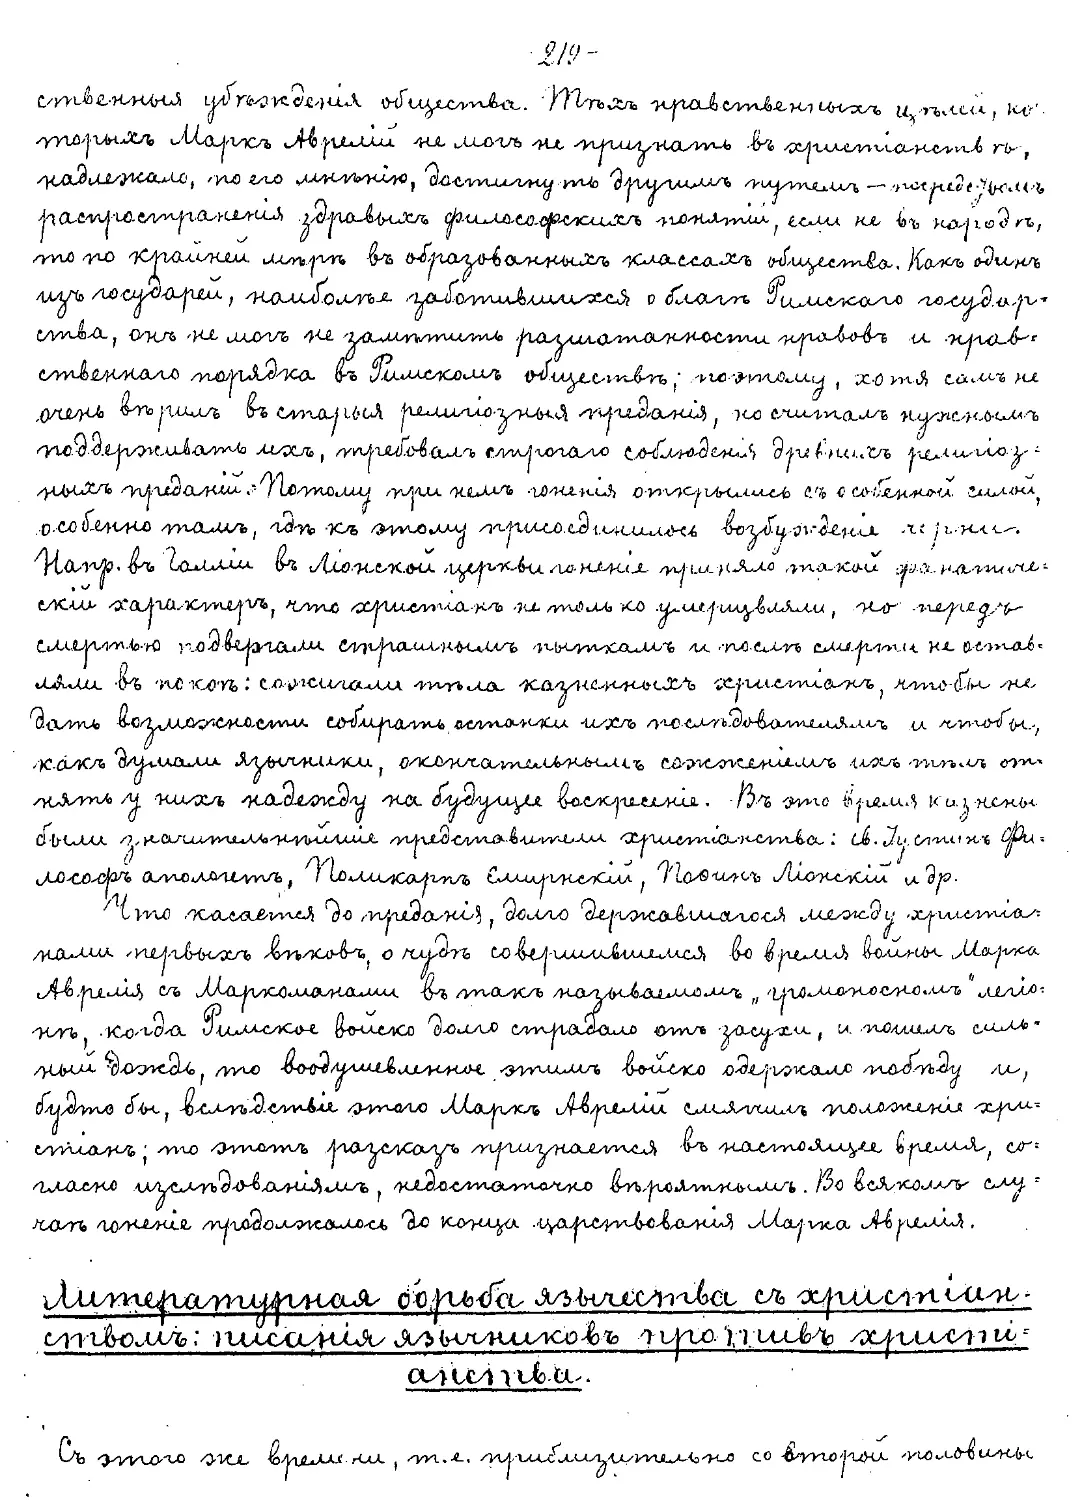 -219-
ственныя убѣжденія общества. Тѣхъ нравственныхъ цѣлей, ко-
торыхъ Маркъ Аврелій не могъ не признать въ христіанствѣ,
надлежало, по его мнѣнію, достигнуть другимъ путемъ — посредствомъ
распространенія здравыхъ философскихъ понятій, если не въ народѣ,
то по крайней мѣрѣ въ образованныхъ классахъ общества. Какъ одинъ
изъ государей, наиболѣе заботившихся о благѣ Римскаго государ=
ства, онъ не могъ не замѣтить разшатанности нравовъ и нрав=
ственнаго порядка въ Римскомъ обществѣ; поэтому, хотя самъ не
очень вѣрилъ въ старыя религіозныя преданія, но считалъ нужнымъ
поддерживать ихъ, требовалъ строгаго соблюденія древнихъ религіоз=
ныхъ преданій. Потому при немъ гоненія открылись съ особенной силой,
особенно тамъ, гдѣ къ этому присоединилось возбужденіе черни.
Напр. въ Галліи въ Ліонской церкви гоненіе приняло такой фанатиче=
скій характеръ, что христіанъ не только умерщвляли, но передъ
смертью подвергали страшнымъ пыткамъ и послѣ смерти не остав=
ляли въ покоѣ: сожигали тѣла казненныхъ христіанъ, чтобы не
дать возможности собирать останки ихъ послѣдователямъ и чтобы,
какъ думали язычники, окончательнымъ сожженіемъ ихъ тѣлъ от=
нять у нихъ надежду на будущее воскресеніе. Въ это время казнены
были значительнѣйшіе представители христіанства: св. Іустинъ Фи=
лософъ апологетъ, Поликарпъ Смирнскій, Поѳинъ Ліонскій и др.
Что касается до преданія, долго державшагося между христіа=
нами первыхъ вѣковъ, о чудѣ совершившемся во время войны Марка
Аврелія съ Маркоманами въ такъ называемомъ „громоносномъ" легіо=
нѣ, когда Римское войско долго страдало отъ засухи, и пошелъ силь=
ный дождь, то воодушевленное этимъ войско одержало побѣду и,
будто бы, вслѣдствіе этого Маркъ Аврелій смягчилъ положеніе хри=
стіанъ; то этотъ разсказъ признается въ настоящее время, со=
гласно изслѣдованіямъ, недостаточно вѣроятнымъ. Во всякомъ слу=
чаѣ гоненіе продолжалось до конца царствованія Марка Аврелія.
Литературная борьба язычества съ христіан=
ствомъ: писанія язычниковъ противъ христі=
анства.
Съ этого же времени, т.е. приблизительно со второй половины